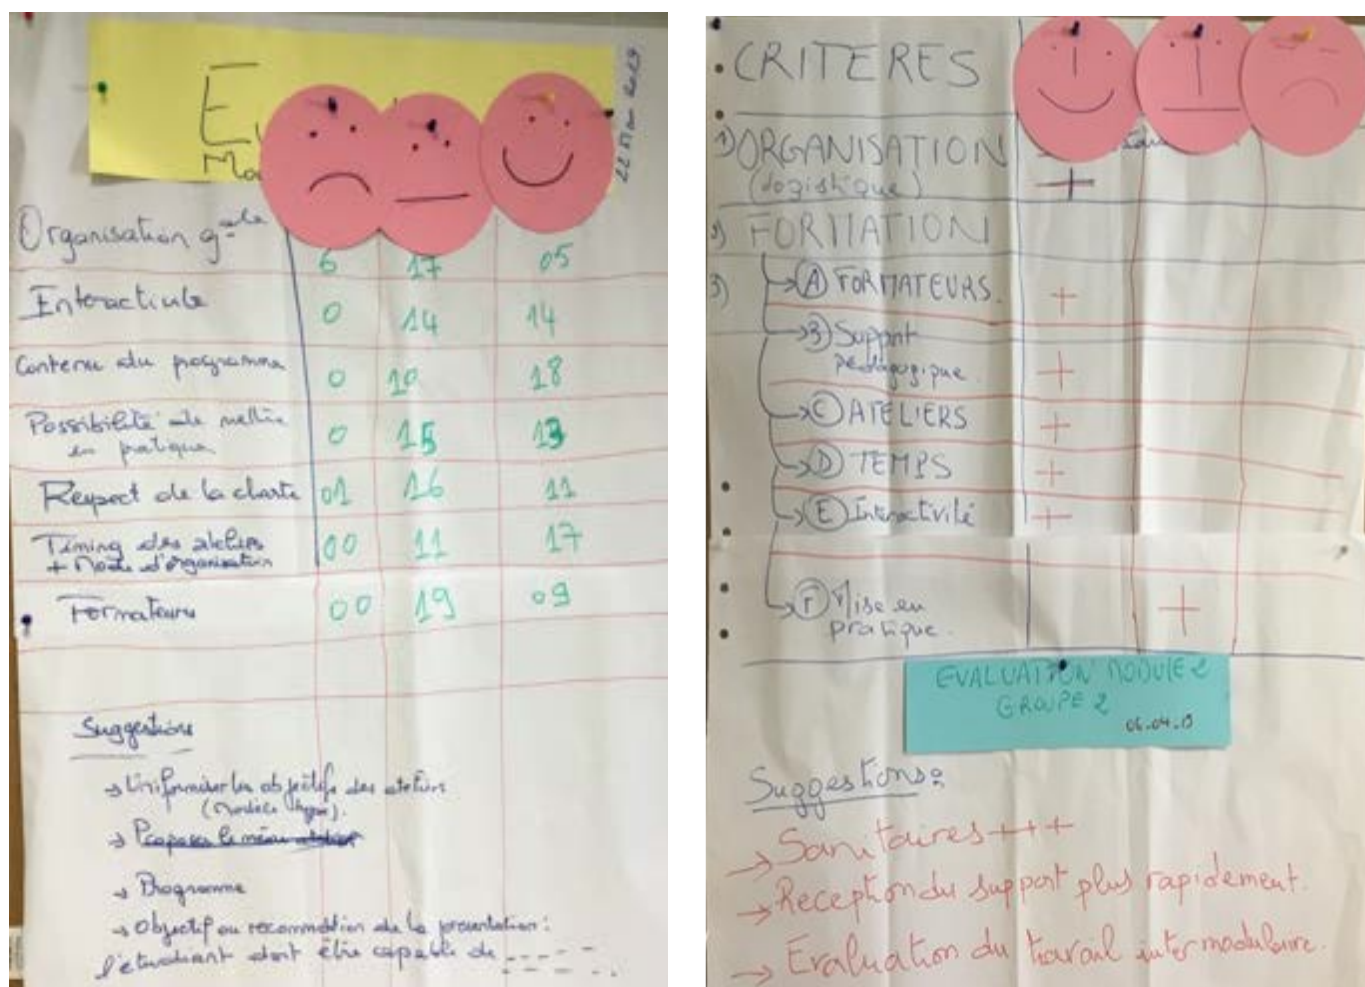 22 Mars 2019
Organisation gale 6 17 05
Interactivité 0 14 14
Contenu du programme 0 10 18
Possibilité de mettre
en pratique 0 15 13
Respect de la charte 01 16 11
Timing des ateliers
+ Mode d'organisation 00 11 17
Formateurs 00 19 09
Suggestions
→ Uniformiser les objectifs des ateliers
→ Proposer le même
→ Programme
→ Objectif ou recommation de la présentation :
l'étudiant doit être capable de
CRITERES
1) ORGANISATION
(logistique) +
2) FORMATION
3)
→ A FORMATEURS. +
→ B) Support
pédagogique. +
→ C ATELIERS +
→ D TEMPS +
→ E Interactivité +
→ F Mise en
pratique. +
EVALUATION MODULE 2
GROUPE 2
06.04.19
Suggestions :
→ Sanitaires +++
→ Reception du support plus rapidement.
→ Evaluation du travail intermodulaire.